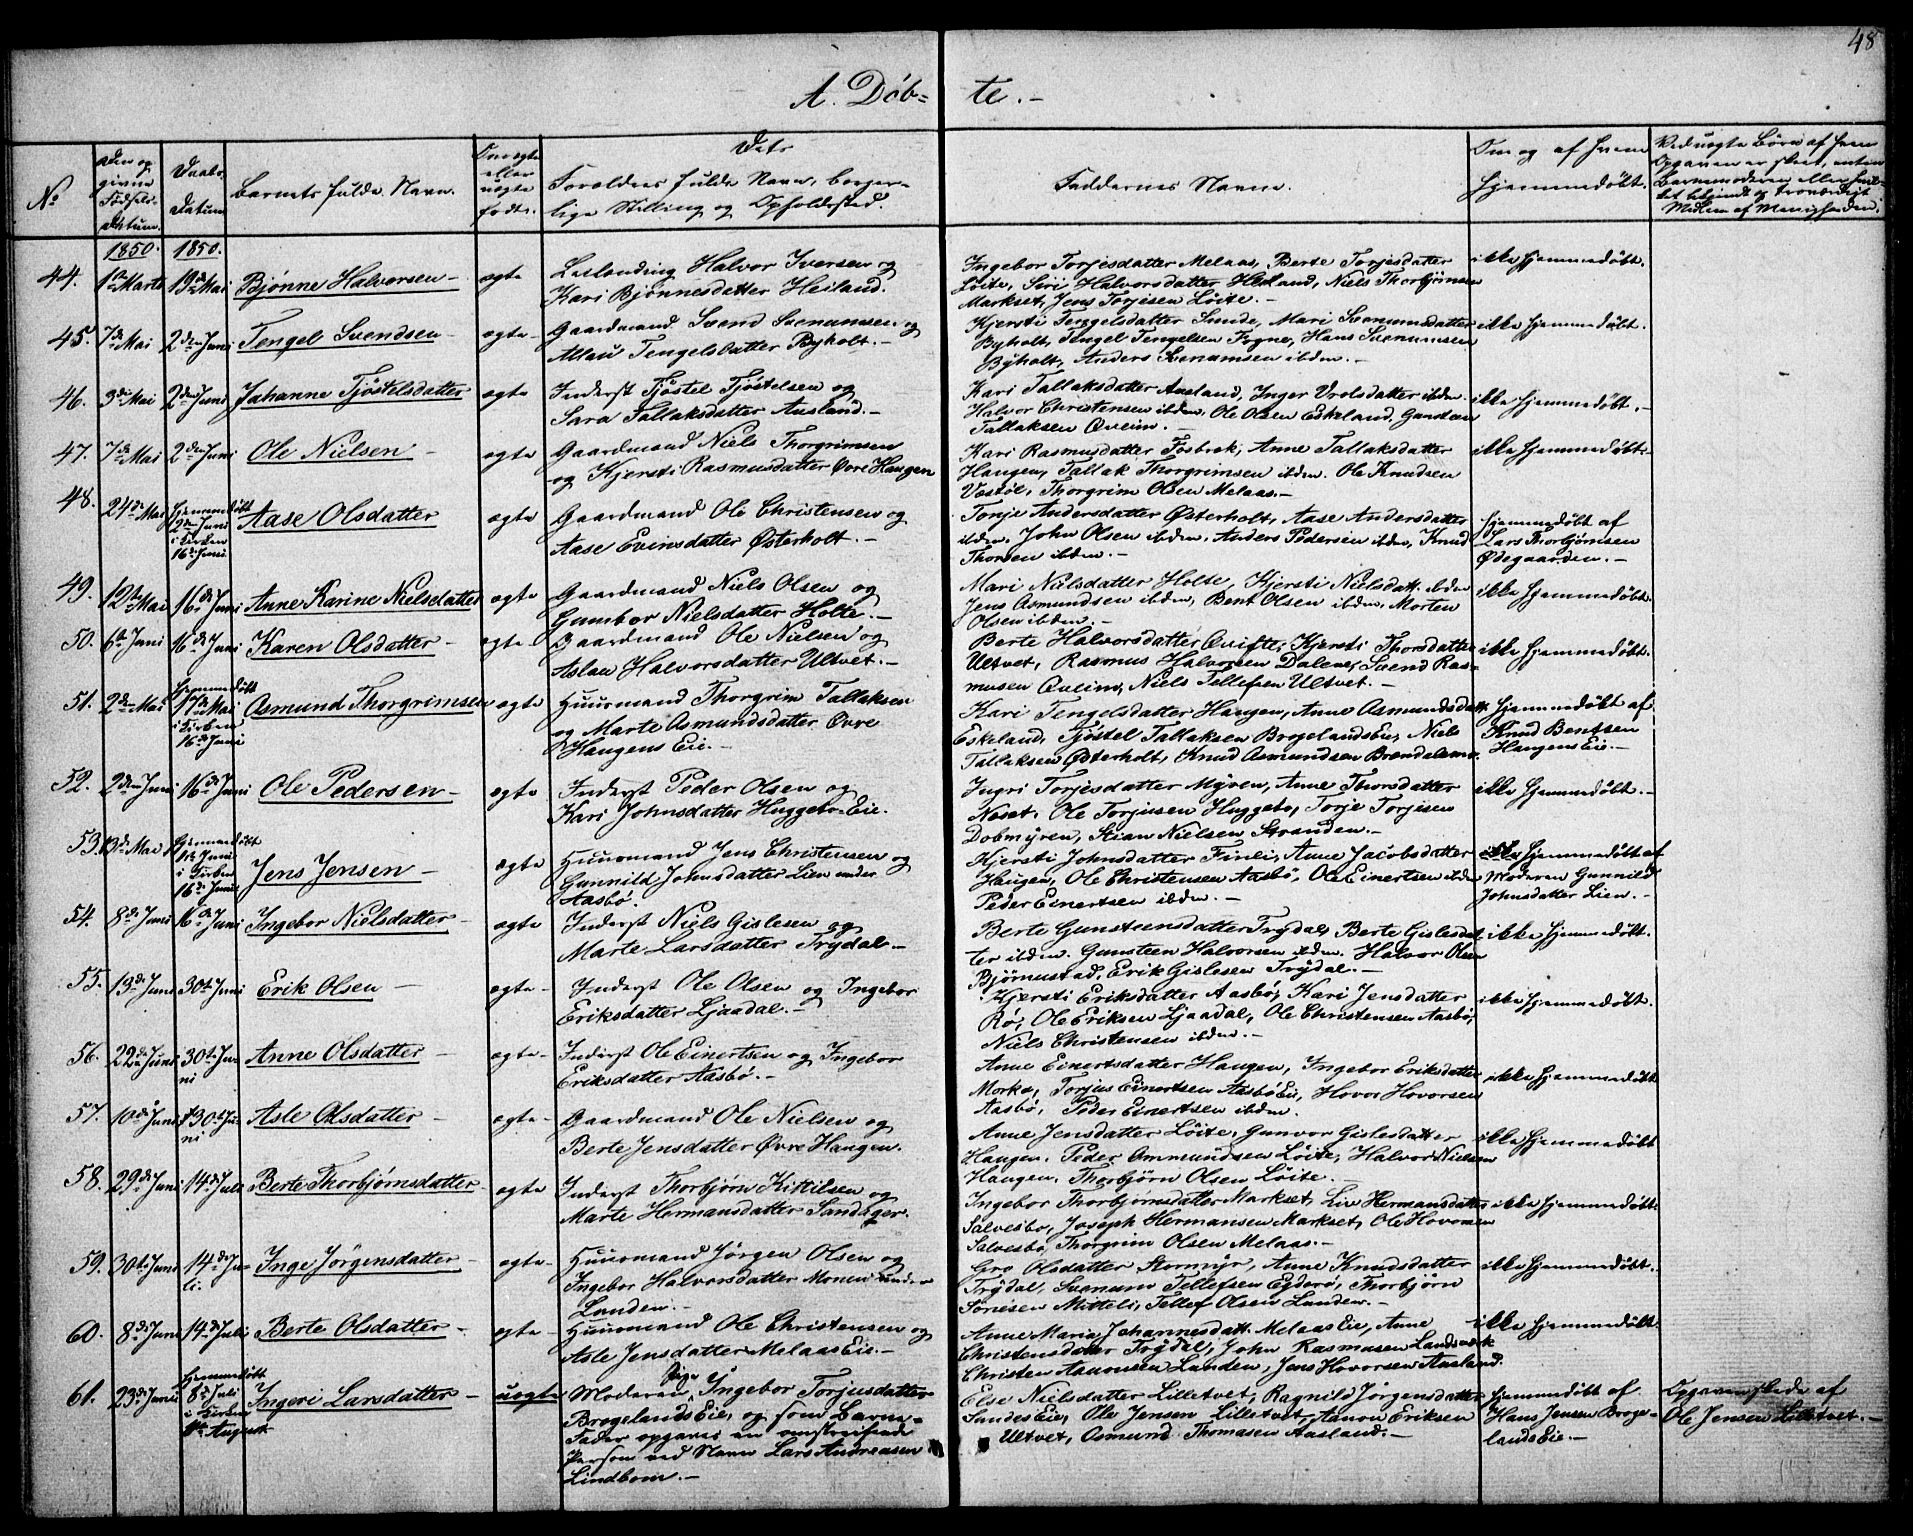 48
A. Döb= te.-
No
Den og givne Fødsels-Datum.
Daabs-Datum
Barnets fulde Navn.
Om ægte eller uægte født.
Dets Forældres fulde Navn, borger-
lige Stilling og Opholdssted.
Faddernes Navne.
Om og af hvem
hjemmedöbt.
Ved uægte Börn af hvem
Opgaven er skeet, enten
Barnemoderen eller
bekjendt og troværdigt
Medlem af Menigheden.
1850. 1850.
44. 1ste Marts 19de Mai Bjønne Halvorsen - ægte Halvor Iversen og
Kari Bjønnesdatter Heiland.
Ingebor Torjesdatter Melaas, Berte Torjesdatter
Löite, Siri Halvorsdatter Heiland, Niels Thorbjörnsen
Markset, Jens Torjesen Löite.-
ikke hjemmedöbt.
45. 7de Mai 2den Juni Tengel Svendsen - ægte- Gaardmand Svend Svenumsen og
Aslau Tengelsdatter Byholt.-
Kjersti Tengelsdatter Smide, Mari Svenumsdatter
Byholt, Tengel Tengelsen Fogne, Hans Svenumsen
Byholt, Anders Svenumsen ibden.-
ikke hjemmedöbt.
46. 3die Mai 2den Juni Johanne Tjöstelsdatter ægte Inderst Tjöstel Tjöstelsen og
Sara Tallaksdatter Aasland.-
Kari Tallaksdatter Aasland, Inger Vrolsdatter ibden.
Halvor Christensen ibden, Ole Olsen Eskeland, Gunsteen
Tallaksen Qveim.-
ikke hjemmedöbt.-
47. 7de Mai 2den Juni Ole Nielsen - ægte Gaardmand Niels Thorgrimsen
og Kjersti Rasmusdatter Övre Haugen
Kari Rasmusdatter Fosbræk, Anne Tallaksdatter
Haugen, Tallak Thorgrimsen ibden. Ole Knudsen
Vestöl, Thorgrim Olsen Melaas.-
ikke hjemmedöbt.
48. 24de Mai Hjemmedöbt
2den Juni
i Kirken
16de Juni. Aase Olsdatter ægte Gaardmand Ole Christensen og
Aase Evinsdatter Österholt.-
Tonje Andersdatter Österholt, Aase Andersdatter
ibden, John Olsen ibden, Anders Pedersen ibden, Knud
Thorsen ibden.-
hjemmedöbt af
Lars Thorbjörnsen
Ödegaarden.-
49. 12te Mai 16de Juni Anne Karine Nielsdatter ægte Gaardmand Niels Olsen og
Gunbor Nielsdatter Holte.-
Mari Nielsdatter Holte, Kjersti Nielsdatt. ibden
Jens Asmundsen ibden, Bent Olsen ibden, Morten
Olsen ibden.-
ikke hjemmedöbt.
50. 6te Juni 16de Juni Karen Olsdatter - ægte Gaardmand Ole Nielsen og
Aslau Halvorsdatter Ultvet.-
Berte Halvorsdatter Qvifte, Kjersti Thorsdatter
Ultvet, Rasmus Halvorsen Dalene, Svend Ras-
musen Qveim, Niels Tellefsen Ultvet.-
ikke hjemmedöbt.
51. 2den Mai Hjemmedöbt
17de Mai
i Kirken
16de Juni Asmund Thorgrimsen ægte Huusmand Thorgrim Tallaksen
og Marte Asmundsdatter Övre
Haugens Eie.-
Kari Tengelsdatter Haugen, Anne Asmundsdatt.
Eskeland, Tjöstel Tallaksen Brogelands Eie, Niels
Tallaksen Österholt, Knud Asmundsen
hjemmedöbt af
Knud Bentsen
Haugens Eie.-
52. 2den Juni 16de Juni Ole Pedersen - ægte Inderst Peder Olsen og
Kari Johnsdatter Huggebo Eie.
Ingri Torjesdatter Myren, Anne Thorsdatter
Næset, Ole Torjusen Huggebo, Torje Torjesen
Dobmyren, Stian Nielsen Stranden.-
ikke hjemmedöbt.-
53. 13de Mai Hjemmedöbt
Juni
i Kirken
16de Juni Jens Jensen - ægte Huusmand Jens Christensen og
Gunnild Johnsdatter Lien under
Aasbö.
Kjersti Johnsdatter Finli, Anne Jacobsdatter
Haugen, Ole Christensen Aasbö, Ole Einertsen ibden
Peder Einertsen ibden.-
hjemmedöbt af
Moderen Gunnild
Johnsdatter Lien.-
54. 8de Juni 16de Juni Ingebor Nielsdatter - ægte Inderst Niels Gislesen og
Marte Larsdatter Trydal-
Berte Gunsteensdatter Trydal, Berte Gislesdat-
ter ibden. Gunsteen Halvorsen ibden. Halvor Olsen
Björnustad, Erik Gislesen Trydal.-
ikke hjemmedöbt.
55. 13de Juni 30te Juni Erik Olsen - ægte- Inderst Ole Olsen og Ingebor
Eriksdatter Ljaadal.-
Kjersti Eriksdatter Aasbö, Kari Jensdatter
Rö, Ole Eriksen Ljaadal, Ole Christensen Aasbö,
Niels Christensen ibden.-
ikke hjemmedöbt.
56. 22de Juni 30te Ju-
ni Anne Olsdatter - ægte- Inderst Ole Einertsen og Ingebor
Eriksdatter Aasbö.-
Anne Einertsdatter Haugen, Ingebor Eriksdatter
Morka, Torjus Einertsen Aasbö Eie, Hovor Hovorsen
Aasbö, Peder Einertsen ibden.
ikke hjemmedöbt
57. 10de Juni 30te Ju-
ni Asle Olsdatter - ægte- Gaardmand Ole Nielsen og
Berte Jensdatter Övre Haugen.
Anne Jensdatter Löite, Gunvor Gislesdatter
Haugen, Peder Ommundsen Löite, Halvor Nielsen
Haugen, Thorbjörn Olsen Löite.-
ikke hjemmedöbt
58. 29de Juni 14de Juli Berte Thorbjørnsdatter - ægte Inderst Thorbjørn Kittilsen og
Marte Hermansdatter Sandager.
Ingebor Thorbjørnsdatter Markset, Liv Hermansdatter
Salvesbo, Joseph Hermansen Markset, Ole Hovorsen
Salvesbo, Thorgrim Olsen Melaas.-
ikke hjemmedöbt.
59. 30te Juni 14de Ju-
li. Inge Jörgensdatter - ægte- Huusmand Jørgen Olsen og
Ingebor Halvorsdatter Monen under
Lunden.-
Gro Olsdatter Stormyr, Anne Knudsdatter
Trydal, Svenum Tellefsen Egderö, Thorbjörn
Sörensen Mitteli, Tellef Olsen Lunden.-
ikke hjemmedöbt.
60. 8de Juni 14de Juli Berte Olsdatter - ægte- Huusmand Ole Christensen og
Asle Jensdatter Melaas Eie.-
Anne Maria Johannesdatt. Melaas Eie, Anne
Christensdatter Trydal, John Rasmusen Landsværk
Christen Aanonsen Lunden, Jens Hovorsen Aasland.
ikke hjemmedöbt.
61. 23de Juni Hjemmedöbt
8de Juli
i Kirken
August Ingeri Larsdatter - uægte Moderen Pige Ingebor Torjusdatter
Brogelands Eie, og som Barne-
Fader opgives en omstreifende
Person ved Navn Lars Andreassen
Lindbom.-
Else Nielsdatter Lilletvet, Ragnild Jörgensdatter
Sandes Eie, Ole Jensen Lilletvet, Aanon Eriksen
Ultvet, Osmund Thomasen Aasland.-
hjemmedöbt af
Hans Jensen Broge-
lands Eie.-
Opgaven skede af
Ole Jensen Lilletvet.-